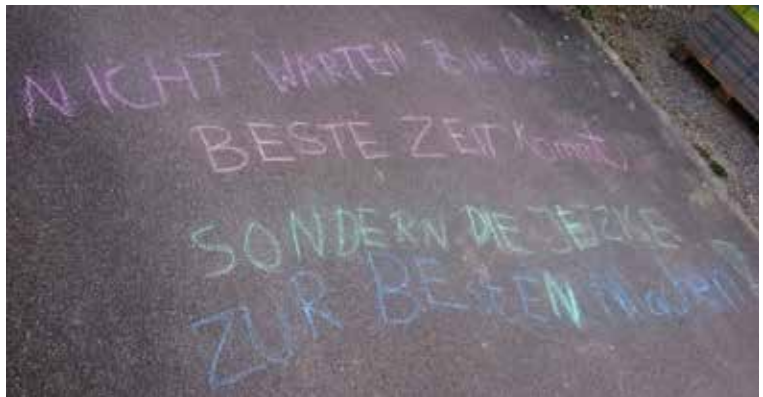 NICHT WARTEN BIS DIE
BESTE ZEIT Kommt,
SONDERN DIE
ZUR BEStEN MacheN!